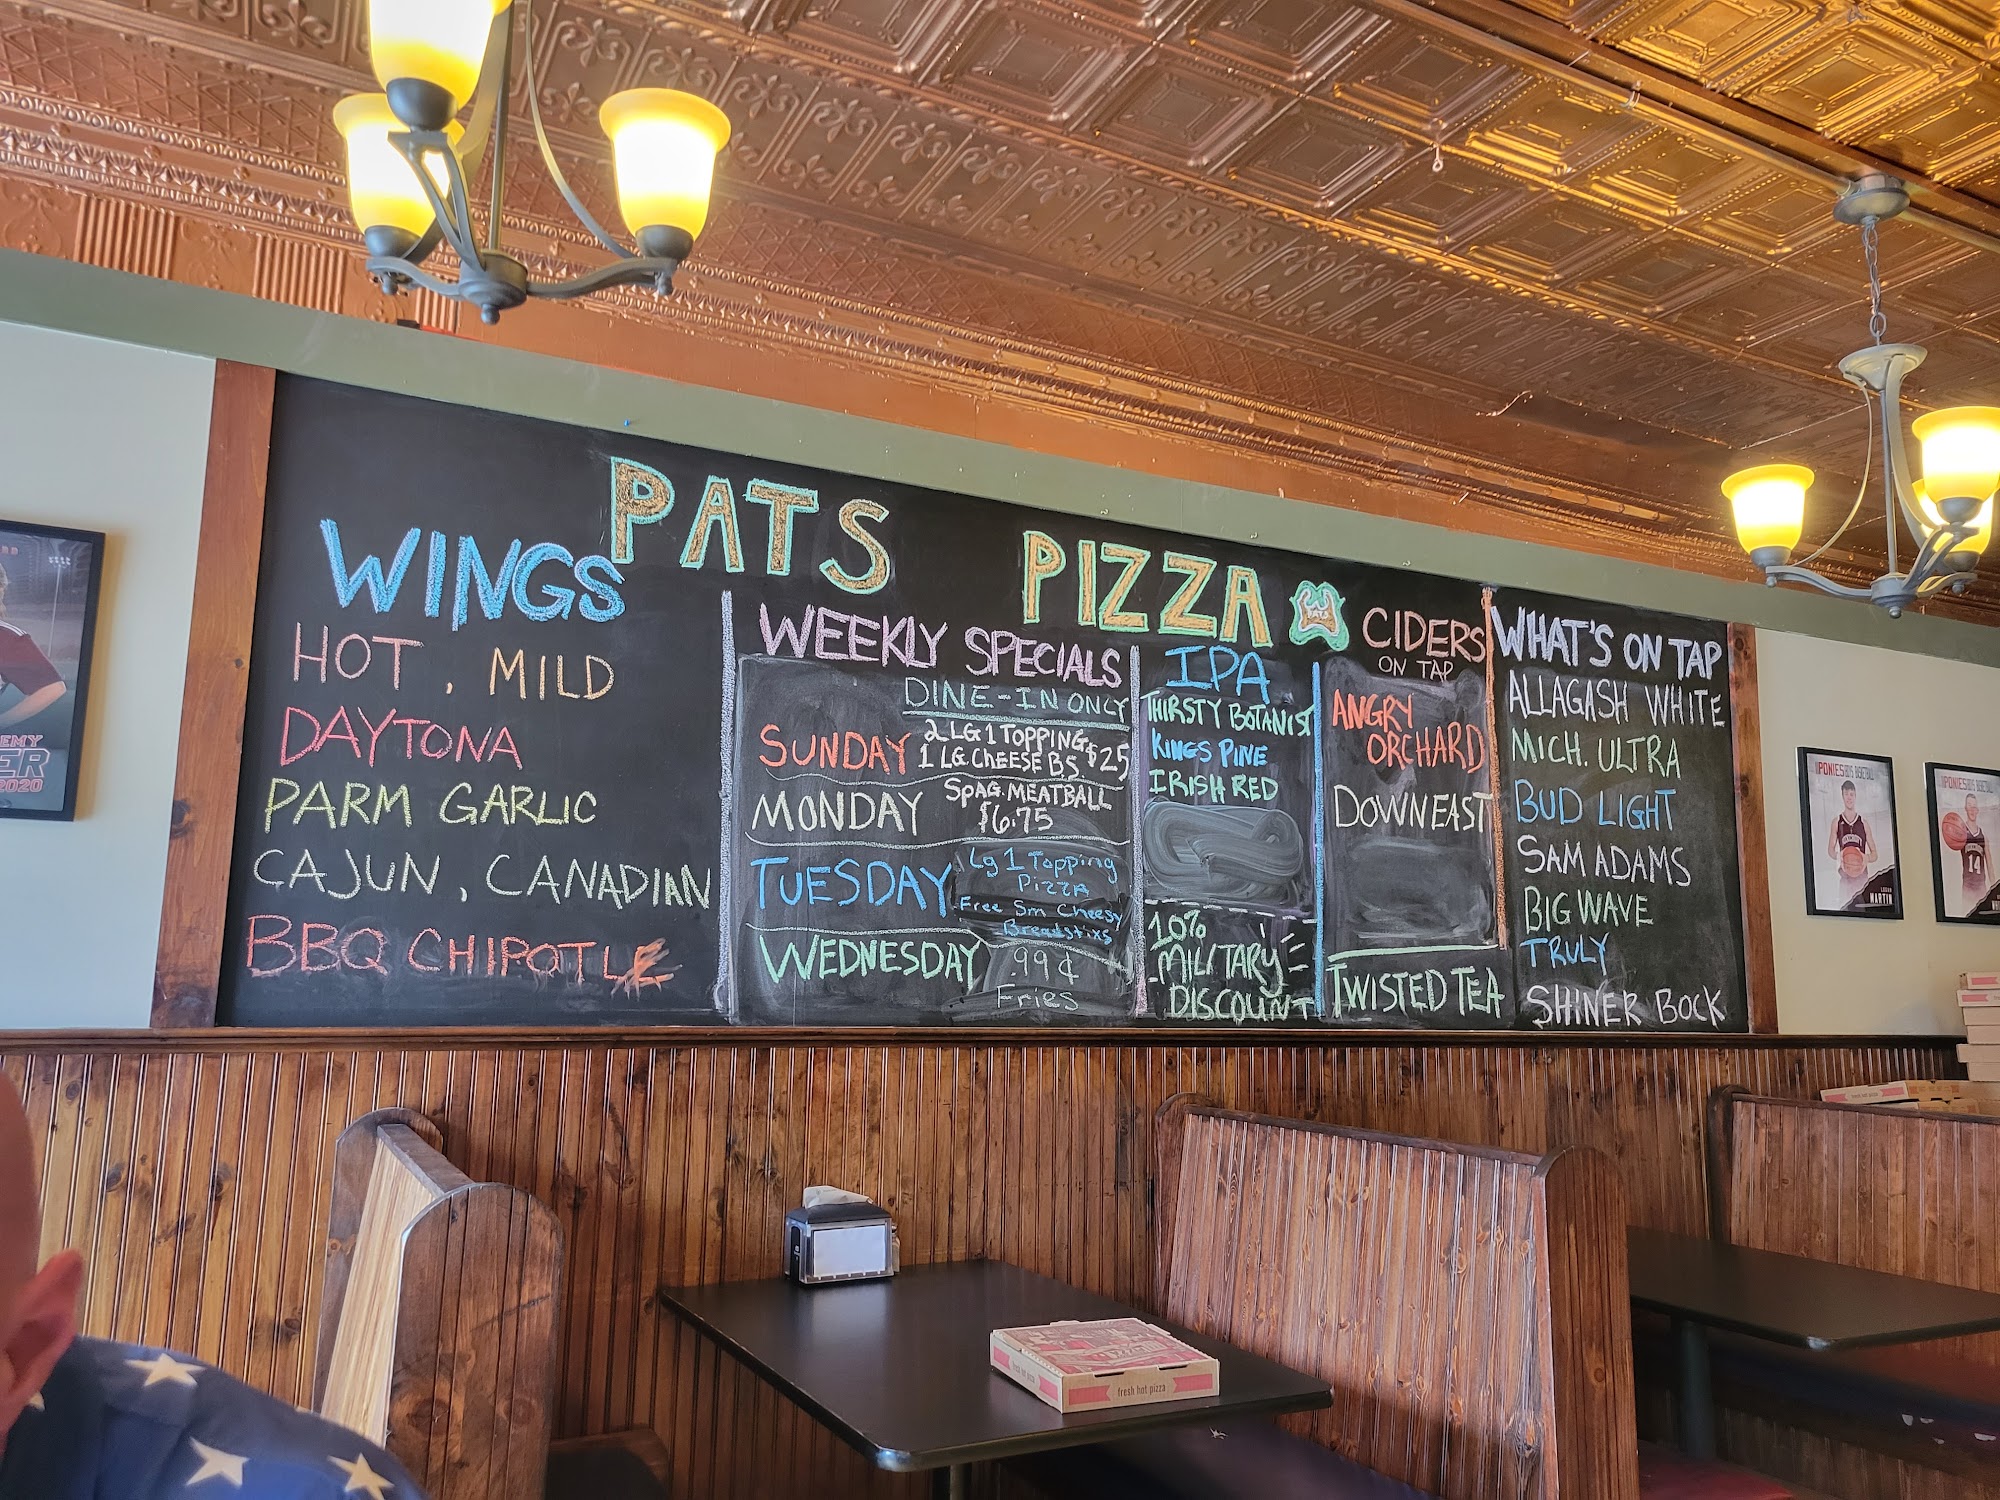 PATS PIZZA
PATS
WINGS
HOT, MILD
DAYTONA
PARM GARLIC
CAJUN, CANADIAN
BBQ CHIPOTLE
WEEKLY SPECIALS
DINE-IN ONLY
SUNDAY 2 LG 1 TOPPING
1 LG CHEESE B.S. $25
MONDAY SPAG. MEATBALL
$6.75
TUESDAY Lg 1 Topping
PIZZA
Free Sm Cheesy
Breadstixs
WEDNESDAY .99¢
Fries
IPA
THIRSTY BOTANIST
KINGS PINE
IRISH RED
10%
MILITARY
DISCOUNT
CIDERS
ON TAP
ANGRY
ORCHARD
DOWNEAST
TWISTED TEA
WHAT'S ON TAP
ALLAGASH WHITE
MICH. ULTRA
BUD LIGHT
SAM ADAMS
BIG WAVE
TRULY
SHINER BOCK
2020
PONIES BASKETBALL
MARTIN
PONIES BASKETBALL
14
fresh hot pizza
fresh hot pizza